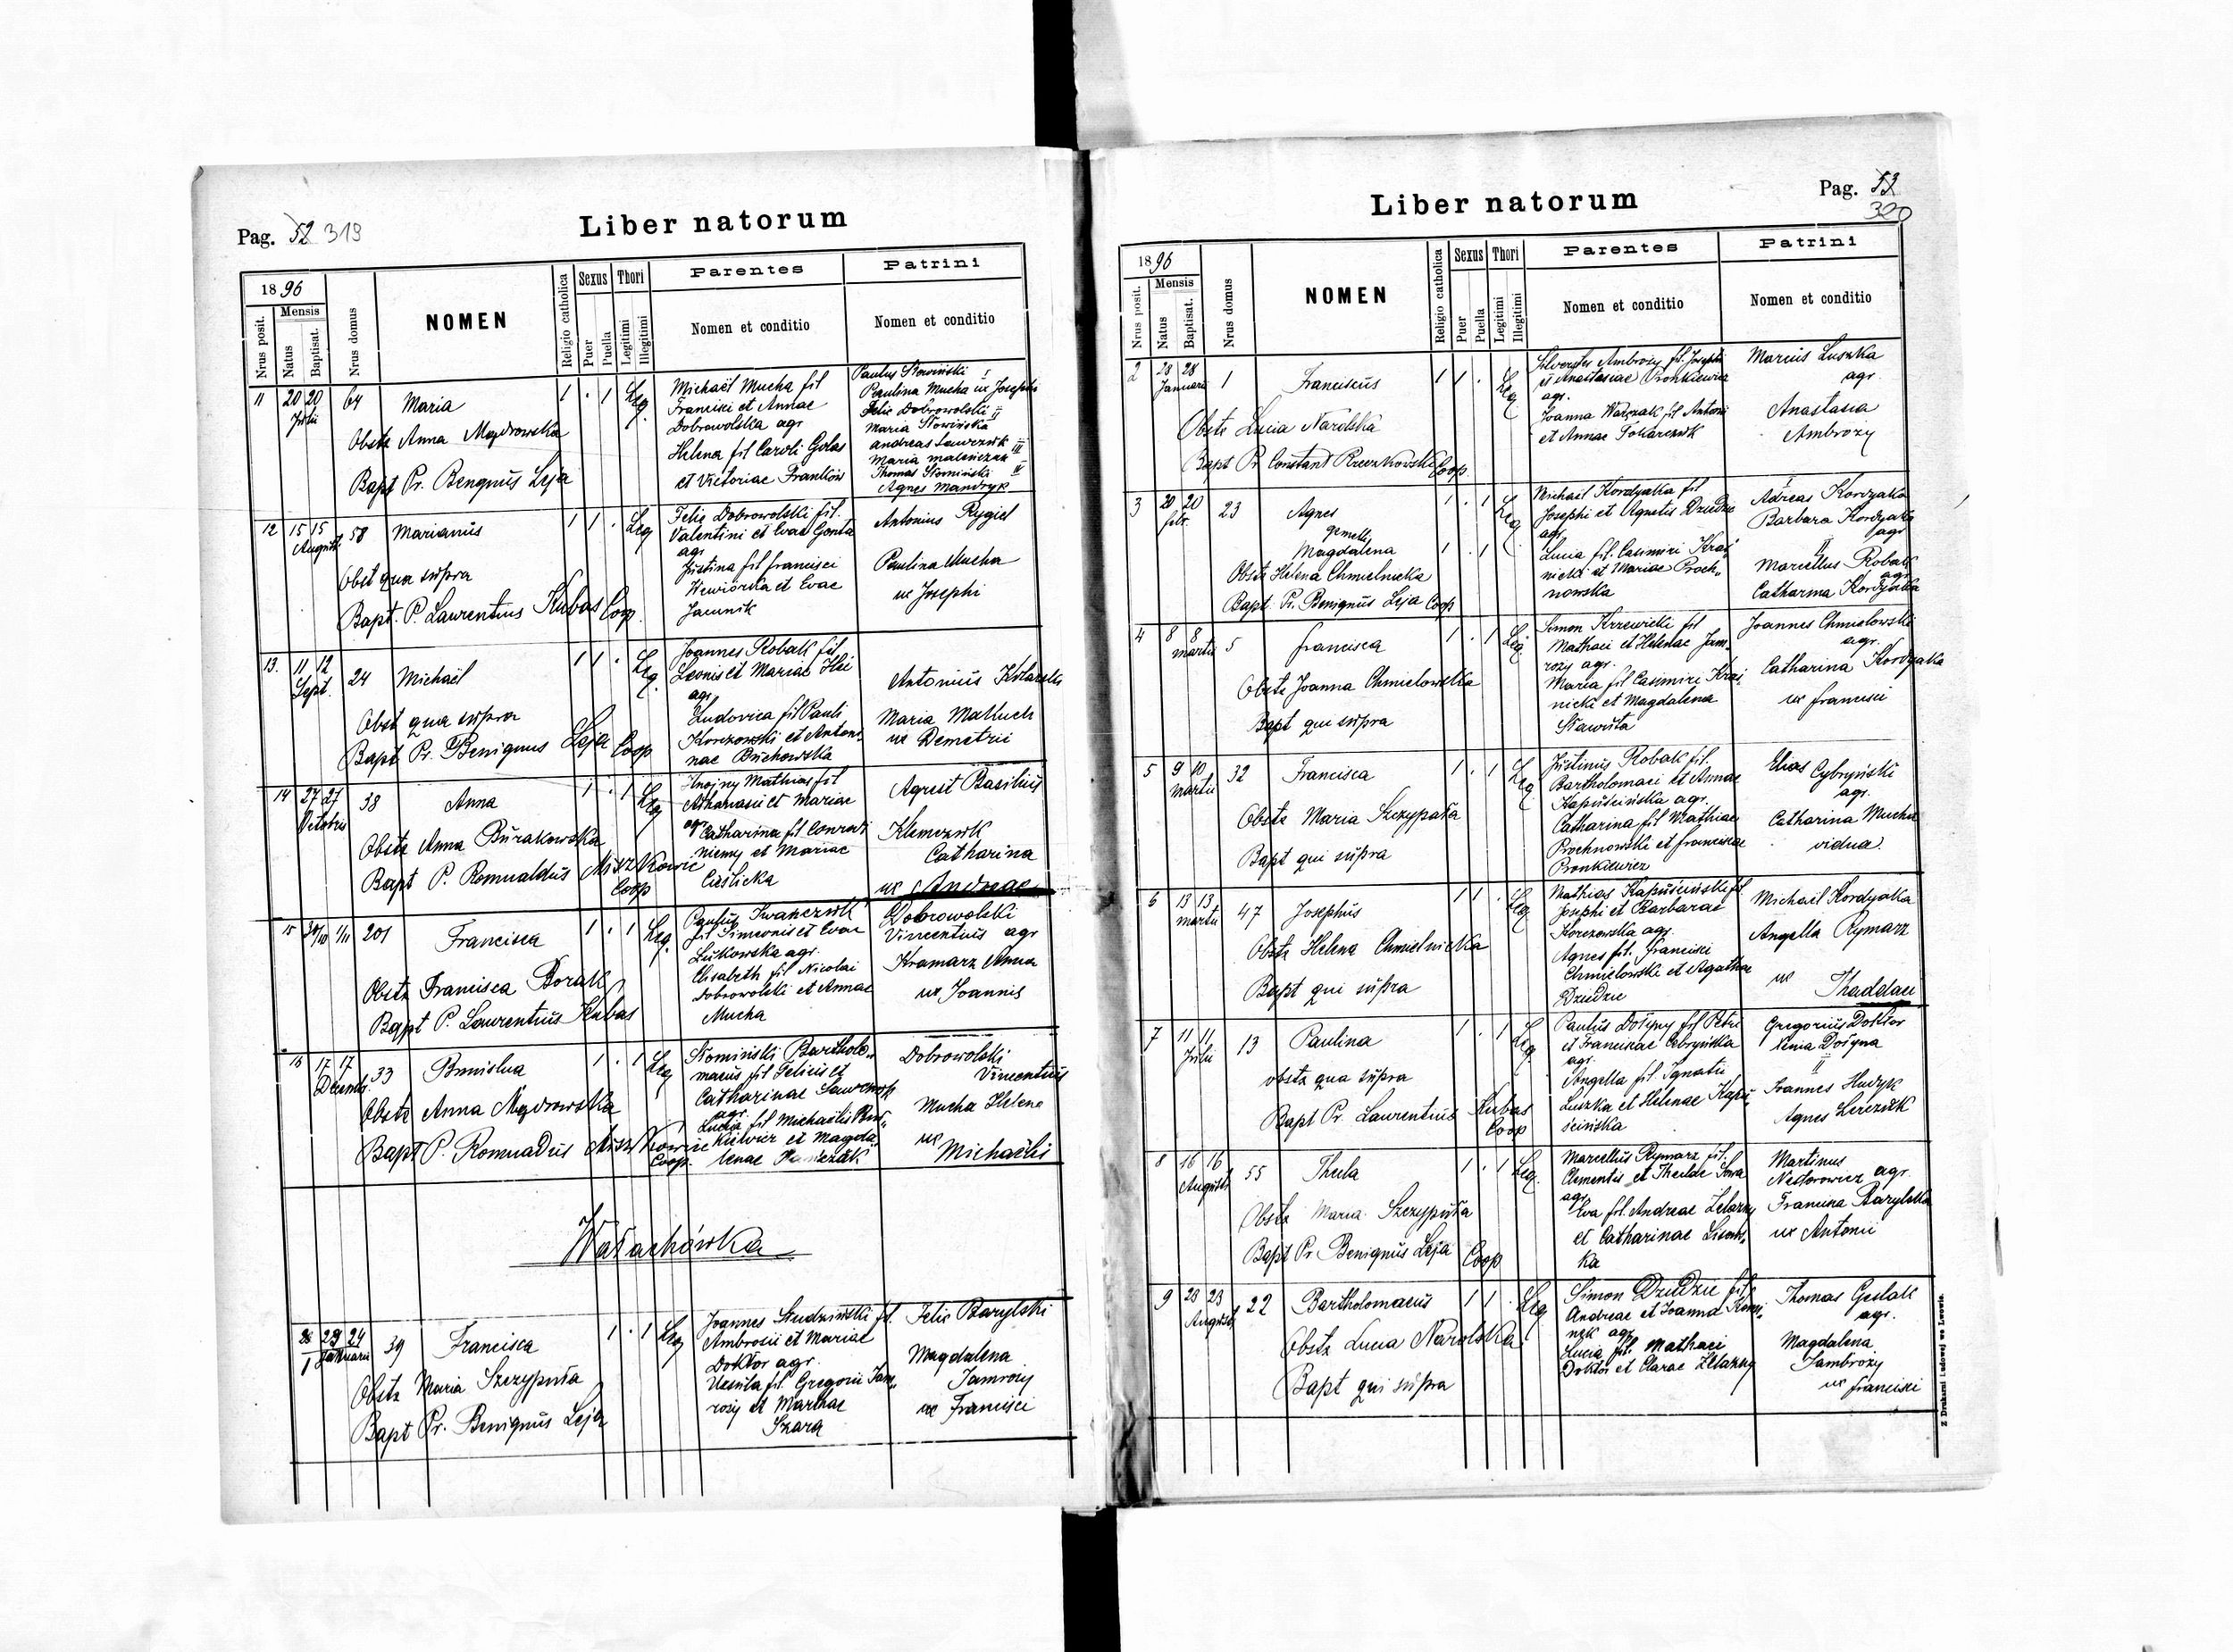 Pag. 52 319
Liber natorum
1896
Nrus posit.
Mensis
Natus
Baptisat.
Nrus domus
NOMEN
Religio catholica
Sexus
Puer
Puella
Thori
Legitimi
Illegitimi
Parentes
Nomen et conditio
Patrini
Nomen et conditio
11 20 20 Julii 64 Maria 1 . 1 Leg
Obstx Anna Mędrowska
Bapt Pr. Bengnus Leja
Michaël Mucha fil
Francisci et Annae
Dobrowolska agr
Helena fil Caroli Golas
et Victoriae Franków
Paulus Słowiński I
Paulina Mucha ux Josephi
Felix Dobrowolski II
Maria Słowińska
Andreas Ławrczuk III
Maria
Thomas Słomiński IV
Agnes Mandryk
12 15 15 Augusti 58 Marianus 1 1 . Leg
Obst qua supra
Bapt. P. Laurentius Kubas Coop.
Felix Dobrowolski fil.
Valentini et Evae Gonta
agr
Justina fil francisci
Wiewiórka et Evae
Jacunik
Antonius Rygiel
Paulina Mucha
ux Josephi
13. 11 12 Sept. 24 Michaël 1 1 . Leg.
Obst qua supra
Bapt Pr. Benignus Leja Coop
Joannes Robak fil
Leonis et Mariae
agr
Ludovica fil Pauli
Korczowski et Antoni
nae Buchowska
Antonius
Maria Malluch
ux Demetrii
14 27 27 Octobris 38 Anna 1 . 1 Leg
Obstx Anna Burakowska
Bapt P. Romualdus Misz Kowic
Coop
Mathias fil
Athanasii et Mariae
agr Catharina fil Conradi
Niemy et Mariae
Cieślicka
Agrest Basilius
Klemczuk
Catharina
ux Andreae
15 30/10 1/11 201 Francisca 1 . 1 Leg.
Obstx Francisca Borak
Bapt P. Laurentius Kubas
Paulus Iwańczuk
fil Simeonis et Evae
Luskowska agr.
Elisabeth fil Nicolai
Dobrowolski et Annae
Mucha
Dobrowolski
Vincentius agr
Kramarz Anna
ux Joannis
16 17 17 Decembr. 33 Bronislua 1 . 1 Leg
Obstx Anna Mędrowska
Bapt P. Romuadus Misz Kowic
Coop.
Słomiński Bartholo„
maeus fil Felicis et
Catharinae Ławrczuk
agr.
Lucia fil Michaëlis Pron„
kiewicz et Magda„
lenae
Dobrowolski
Vincentius
Mucha Helena
ux
Michaëlis
Wałachówka
1 24 Januarii 39 Francisca 1 . 1 Leg
Obstx Maria Szczypuła
Bapt Pr. Benignus Leja
Joannes Studziński fil.
Ambrosii et Mariae
Doktor agr.
Ursula fil. Gregorii Jam„
roży et Marthae
Szara
Felix Barylski
Magdalena
Jamroży
ux Francisci
Liber natorum
Pag. 53
320
1896
Nrus posit.
Mensis
Natus
Baptisat.
Nrus domus
NOMEN
Religio catholica
Sexus
Puer
Puella
Thori
Legitimi
Illegitimi
Parentes
Nomen et conditio
Patrini
Nomen et conditio
2 28 28 Januarii 1 Franciscus 1 1 . Leg
Obstx Lucia Narolska
Bapt Pr Constant Rzeczkowski Coop
Silvester Ambroży fil. Josephi
et Anastasiae Pronkiewicz
agr.
Joanna Warzak fil Antoni
et Annae Tokarczuk
Marcus Luszka
agr.
Anastasia
Ambroży
3 20 20 febr. 23 Agnes 1 . 1 Leg
Gemelli
Magdalena 1 . 1
Obstx Helena Chmielnicka
Bapt. Pr. Benignus Leja Coop
Michaël Kordyaka fil
Josephi et Agnetis Dziedzic
agr.
Lucia fil. Casimiri Kraj„
nicki et Mariae Proch„
nowska
Adreas Kordyaka
Barbara Kordyaka
agr
II
Marcellus Robak
agr
Catharina Kordyaka
4 8 8 martii 5 francisca 1 . 1 Leg.
Obstx Joanna Chmielowska
Bapt qui supra
Simon Krzewicki fil
Mathaei et Helenae Jam„
roży agr.
Maria fil Casimiri Kraj„
nicki et Magdalena
Sławuta
Joannes Chmielowski
agr.
Catharina Kordyaka
ux francisci
5 9 10 Martii 32 Francisca 1 . 1 Leg
Obstx Maria Szczypała
Bapt qui supra
Justinus Robak fil.
Bartholomaei et Annae
Kapuścińska agr.
Catharina fil Mathiae
Prochnowski et franciscae
Pronkiewicz
Elias Cybryński
agr.
Catharina Mucha
vidua.
6 13 13 martii 47 Josephus 1 1 . Leg
Obstx Helena Chmielnicka
Bapt qui supra
Mathias Kapuściński fil
Josephi et Barbarae
Korczowska agr.
Agnes fil. Francisci
Chmielowski et Agathae
Dziedzic
Michaël Kordyaka
Angella Rymarz
ux
Thaddaei
7 11 11 Julii 13 Paulina 1 . 1 Leg
obstx qua supra
Bapt Pr. Laurentius Kubas
Coop
Paulus Dołyny fil Petri
et Franciscae Cebryńska
agr.
Angella fil. Ignatii
Luszka et Helenae Kapu„
ścińska
Gregorius Doktor
Xenia Dołyna
II
Joannes Hudyk
Agnes
8 16 16 Augusti 55 Thecla 1 . 1 Leg.
Obstx Maria Szczypuła
Bapt Pr. Benignus Leja Coop
Marcellus Rymarz fil.
Clementis et Theclae Sowa
agr
Eva fil. Andreae Żelazny
et Catharinae Lisows„
ka
Martinus
Nestorowicz agr.
Francisca Barylska
ux Antonii
9 23 23 Augusti 22 Bartholomaeus 1 1 . Leg
Obstx Lucia Narolska
Bapt qui supra
Simon Dziedzic fil.
Andreae et Joanna
agr
Lucia fil. Mathaei
Doktor et Clarae Żelazny
Thomas Geslak
agr.
Magdalena
Jambroży
ux francisci
Z Drukarni Ludowej we Lwowie.